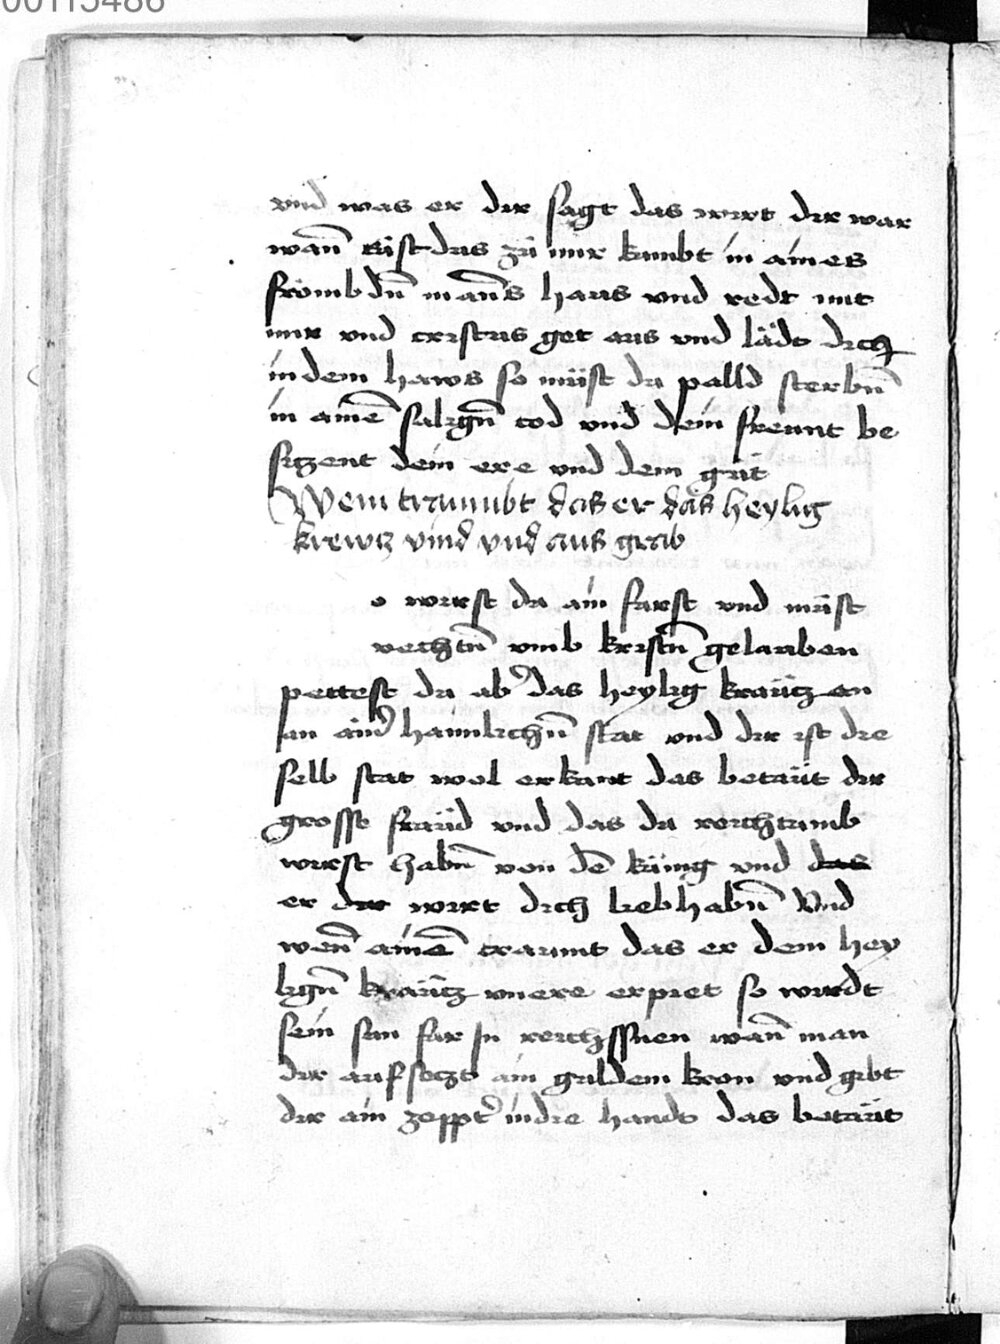 00115486
vnd was er dir sagt das wirt dir war
wan̄ xp̄istus zů mir kumbt in aines
frömbdn̄ man̄s haus vnd redt mit
mir vnd cristus get aus vnd lädt dich
in dem haws so můst du palld sterbn̄
in aine͂ sälign̄ tod vnd dein freunt be
siczent dein ere vnd dein gůt
Wem trawmbt das er das heylig
krewcz vind vnd aus grab
o wirst du ain fürst vnd můst
vechtn̄ vmb kristn̄ gelauben
pettest du ab͛ das heylig kräutz an
an ain͛ haimlichn̄ stat vnd dir ist die
selb stat wol erkant das betäut dir
grosse fräud vnd das du reichtumb
wirst habn̄ von de͂ künig vnd das
er dir wirt dich liebhabn̄ Vnd
wen̄ aine͂ traumt das er dem hey
lign̄ kräutz vnere erpiet so wirdt
sein sun für in reichssnen wan̄ man
dir aufseczt ain guldein kron vnd gibt
dir ain zeppt͛ in die handt das betäut